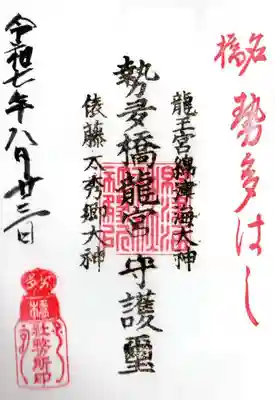 名橋
勢多はし
龍王宮綿津海大神
勢多橋龍宮守護璽
俵藤太秀郷大神
令和七年八月廿三日
社務所印